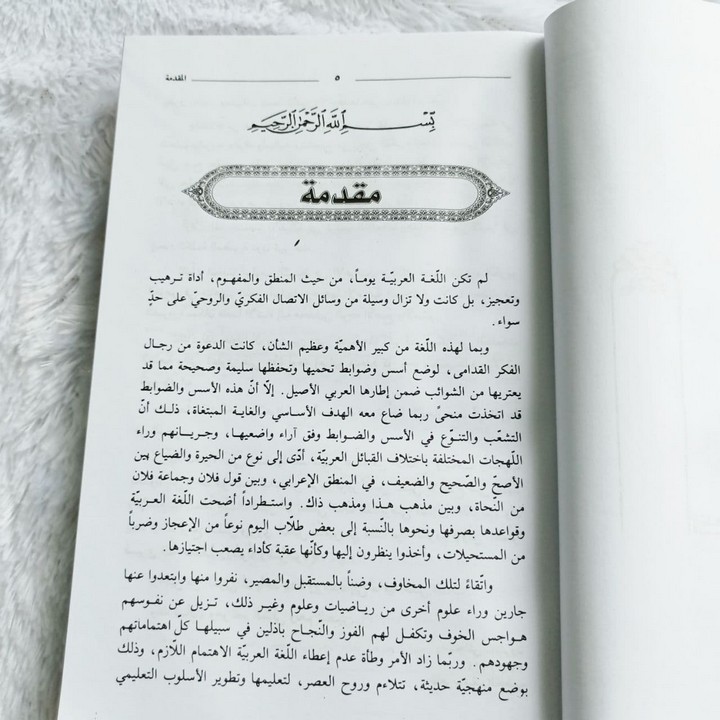 المقدمة ٥
بِسْمِ اللَّهِ الرَّحْمَنِ الرَّحِيمِ
مقدمة
لم تكن اللّغة العربيّة يوماً، من حيث المنطق والمفهوم، أداة ترهيب
وتعجيز، بل كانت ولا تزال وسيلة من وسائل الاتصال الفكريّ والروحيّ على حدٍّ
سواء.
وبما لهذه اللّغة من كبير الأهميّة وعظيم الشأن، كانت الدعوة من رجال
الفكر القدامى، لوضع أسس وضوابط تحميها وتحفظها سليمة وصحيحة مما قد
يعتريها من الشوائب ضمن إطارها العربي الأصيل. إلّا أنّ هذه الأسس والضوابط
قد اتخذت منحىً ربما ضاع معه الهدف الأساسي والغاية المبتغاة، ذلك أنّ
التشعّب والتنوّع في الأسس والضوابط وفق آراء واضعيها، وجريانهم وراء
اللّهجات المختلفة باختلاف القبائل العربيّة، أدّى إلى نوع من الحيرة والضياع بين
الأصحّ والصّحيح والضعيف، في المنطق الإعرابي، وبين قول فلان وجماعة فلان
من النّحاة، وبين مذهب هذا ومذهب ذاك. واستطراداً أضحت اللّغة العربيّة
وقواعدها بصرفها ونحوها بالنّسبة إلى بعض طلّاب اليوم نوعاً من الإعجاز وضرباً
من المستحيلات، وأخذوا ينظرون إليها وكأنّها عقبة كأداء يصعب اجتيازها.
واتّقاءً لتلك المخاوف، وضنّاً بالمستقبل والمصير، نفروا منها وابتعدوا عنها
جارين وراء علوم أخرى من رياضيات وعلوم وغير ذلك، تزيل عن نفوسهم
هواجس الخوف وتكفل لهم الفوز والنّجاح باذلين في سبيلها كلّ اهتماماتهم
وجهودهم. وربّما زاد الأمر وطأة عدم إعطاء اللّغة العربيّة الاهتمام اللّازم، وذلك
بوضع منهجيّة حديثة، تتلاءم وروح العصر، لتعليمها وتطوير الأسلوب التعليمي